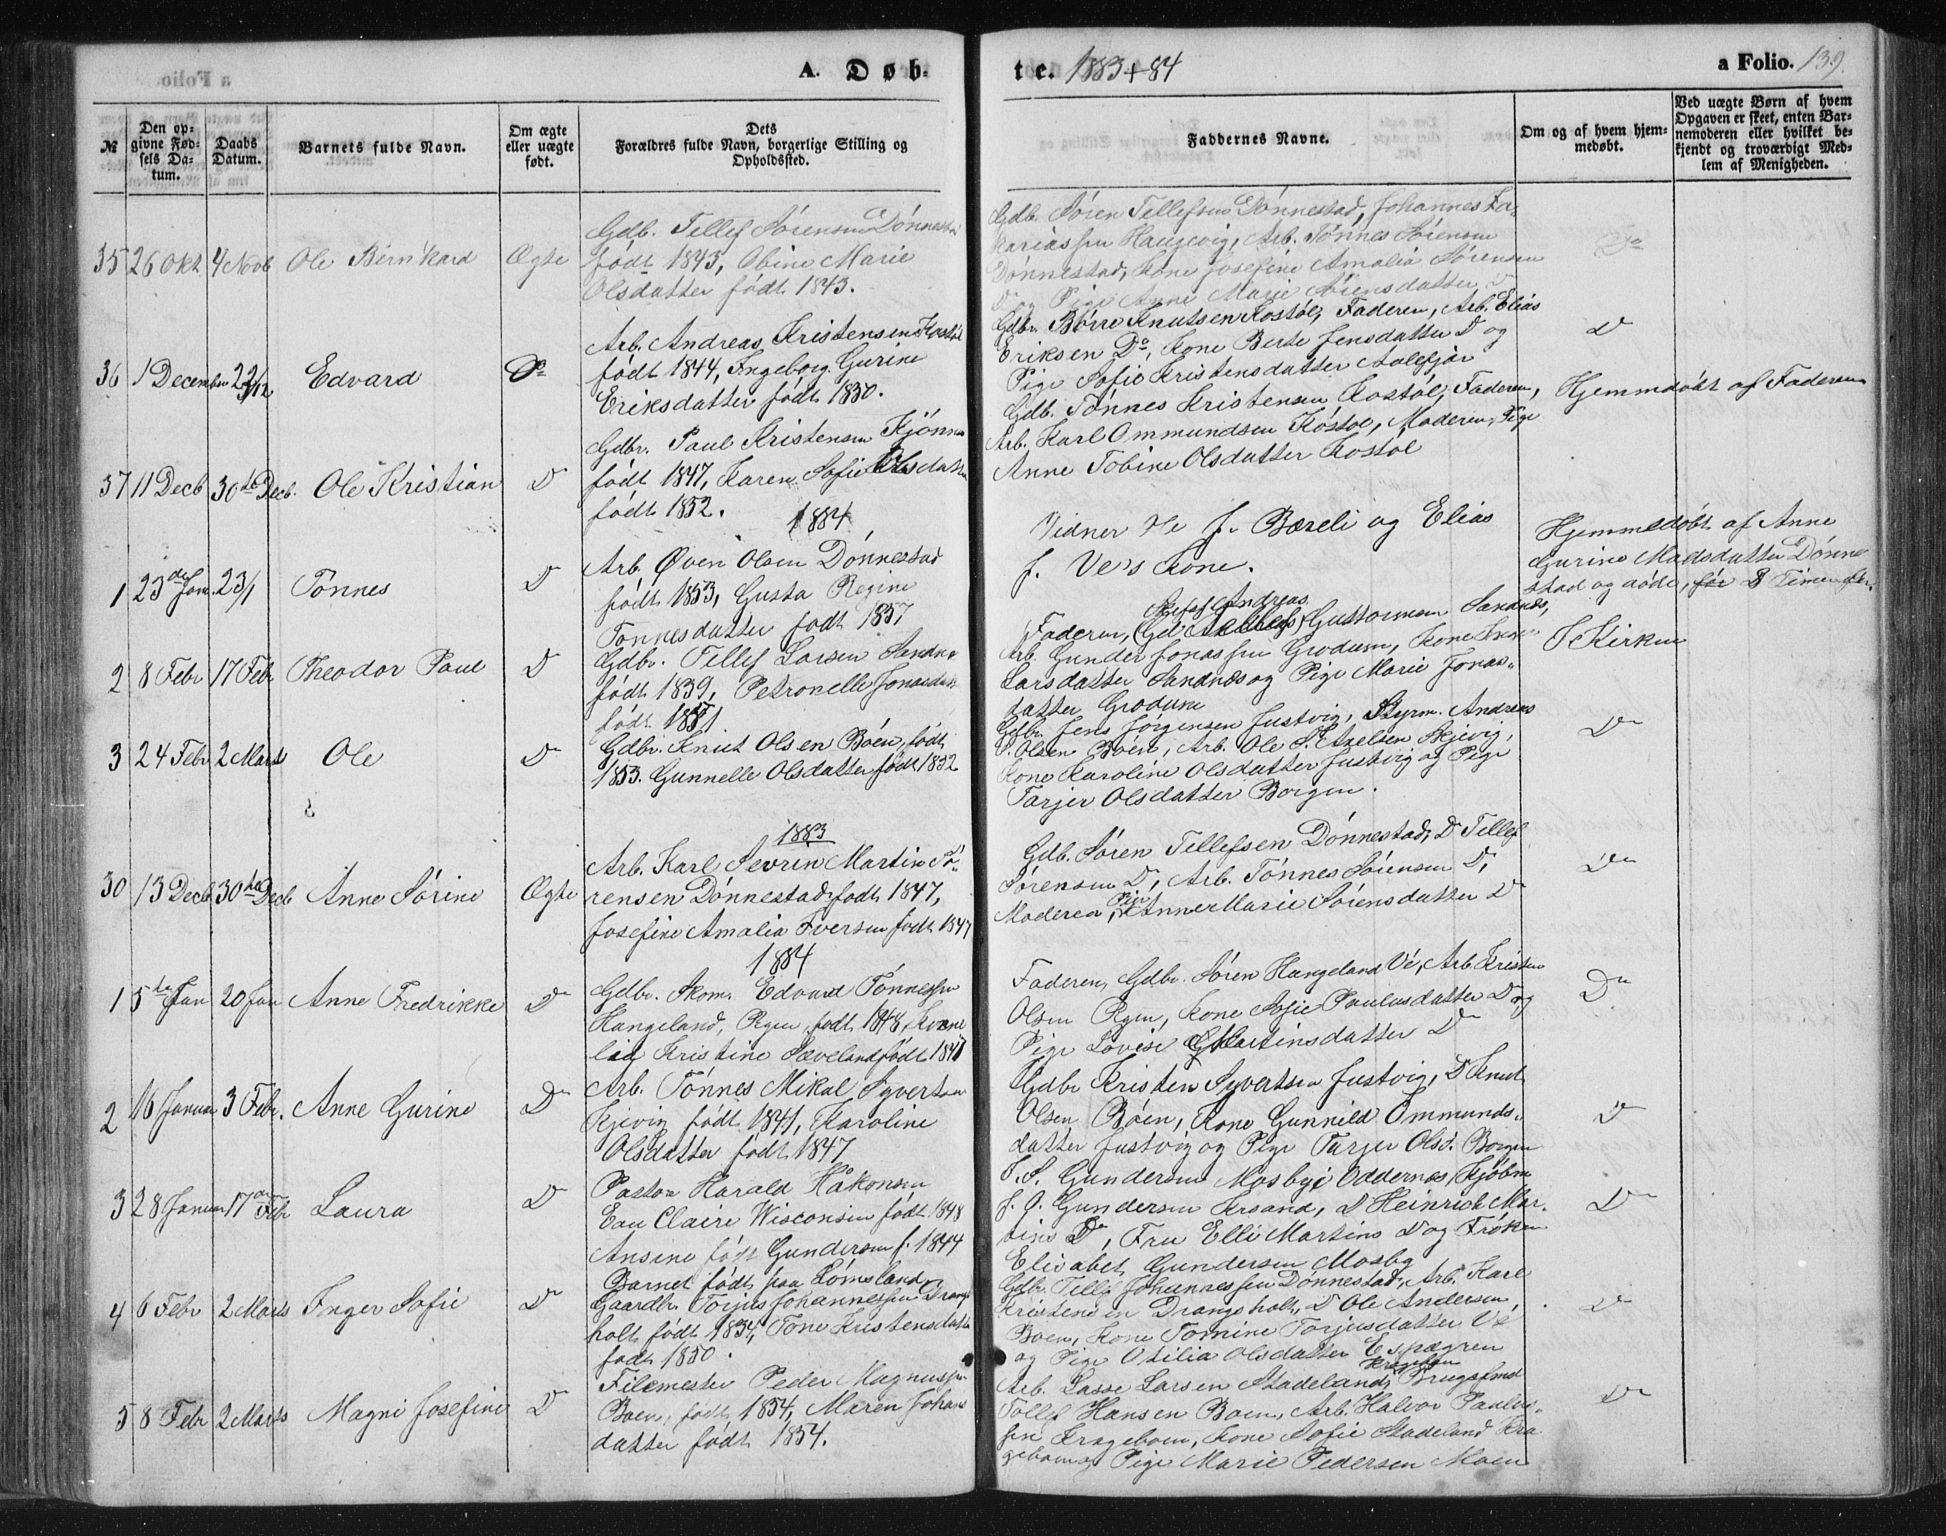 A. Døb- te. 1883+84 a Folio. 139.
№
Den op-
givne Fød-
sels Da-
tum.
Daabs
Datum.
Barnets fulde Navn.
Om ægte
eller uægte
født.
Dets
Forældres fulde Navn, borgerlige Stilling og
Opholdssted.
Faddernes Navne.
Om og af hvem hjem-
medøbt.
Ved uægte Børn af hvem
Opgaven er skeet, enten Bar-
nemoderen eller hvilket be-
kjendt og troværdigt Med-
lem af Menigheden.
35 26 Okt 4 Novb Ole Bernhard Ægte
Gdb. Tellef Sörensen Dönnestad
födt 1843, Obine Marie
Olsdatter födt 1843.
Gdb. Sören Tellefsen Dönnestad, Johannes Za-
kariassen Haugevig, Arb. Tönnes Sörensen
Dönnestad, Kone Josefine Amalia Sörensen
D og Pige Anne Marie Sörensdatter D
Do
36 1 December 23/12 Edvard Do
Arb. Andreas Kristensen Kostöl
födt 1844, Ingeborg Gurine
Eriksdatter födt 1850.
Gdb. Börre Knutsen Kostöl, Faderen, Arb. Elias
Eriksen Do, Kone Berte Jensdatter D og
Pige Sofie Kristensdatter Aalefjær
D
37 11 Decb 30te Decb. Ole Kristian D
Gdbr. Paul Kristensen Kjönne
födt 1847, Karen Sofie Olsdatter
födt 1852.
Gdb. Tönnes Kristensen Kostöl, Faderen,
Arb. Karl Ommundsen Kostöl, Moderen, Pige
Anne Tobine Olsdatter Kostöl
Hjemmdöbt af Faderen
1884
1 23de Jan. 23/1 Tönnes D
Arb. Öven Olsen Dönnestad
födt 1853, Gusta Regine
Tönnesdatter födt 1857
Vidner Ve J. Bæreli og Elias
J. Ve's Kone.
Hjemmedöbt af Anne
Gurine Madsdatter Dönne
stad og döde, för 8 Timer
2 8 Febr 17 Febr Theodor Paul D
Gdbr. Tellef Larsen Sandnes
födt 1839, Petronelle Jonasdatt
födt 1851
Faderen, Andreas Guttormsen Sandnæs,
Arb. Gunder Jonassen Grodum, Kone
Larsdatter Sandnæs og Pige Marie Jonas-
datter Grodum
I Kirken
3 24 Febr 2 Marts Ole D
Gdbr. Knut Olsen Böen, födt
1853. Gunnelle Olsdatter födt 1852
Gdbr. Jens Jörgensen Justvig, Styrm. Andreas
S. Olsen Boen, Arb. Ole S. Axelsen Kjevig,
Kone Karoline Olsdatter Justvig og Pige
Tarjer Olsdatter Borgen.
Do
1883
30 13 Decb 30te Decb Anne Sörine Ægte
Arb. Karl Sevrin Martin Sö-
rensen Dönnestad födt 1847,
Josefine Amalia Iversen födt 1847
Gdb. Sören Tellefsen Dönnestad, D Tellef
Sörensen D, Arb. Tönnes Sörensen D,
Moderen, Pige Anne Marie Sörensdatter D
Do
1884
1 5te Jan 20 Jan Anne Fredrikke Do
Gdbr. Skom. Edvard Tönnessen
Hangeland, Rgen, födt 1848,
Kristine Sæveland födt 1848
Faderen, Gdbr. Sören Hangeland Ve, Arb. Kristen
Olsen Rgen, Kone Sofie Paulusdatter D og
Pige Lovise Martinsdatter Do
Do
2 16 Januar 3 Febr. Anne Gurine Do
Arb. Tönnes Mikal Syvertsen
Kjevig födt 1841, Karoline
Olsdatter födt 1847
Gdbr Kristen Syvertsen Justvig, D Knut
Olsen Böen, Kone Gunnild Ommunds-
datter Justvig og Pige Tarjer Olsd. Borgen
D
3 28 Januar 17de Febr Laura D
Pastor Harald Håkonsen
Eau Claire Wisconsin födt 1848
Ansine født Gundersen f. 1844
Barnet født paa Lömsland.
T. S. Gundersen Mosby i Oddernes, Kjöbm
J. O. Gundersen Krsand, D Heinrich Mar-
tins Do, Fru Elli Martins D og Fröken
Elisabet Gundersen Mosby
Do
4 6 Febr 2 Marts Inger Sofie D
Gaardbr. Torjus Johannessen Drangs
holt födt 1834, Tone Kristensdatter
födt 1850.
Gdbr. Tellef Johannessen Dönnestad, Arb. Karl
Kristensen Drangsholt, D Ole Andersen,
Boen, Kone Tomine Torjusdatter Ve
og Pige Otilia Olsdatter Espegren
D
5 8 Febr 2 Marts Magni Josefine D
Filemester Peder Magnussen
Boen, födt 1854, Maren Johans
datter födt 1854.
Arb. Lasse Larsen Stadeland, Krageboen Brugsfmd
Tollef Hansen Boen, Arb. Halvor Paulus-
sen Krageboen, Kone Sofie Stadeland Kra
geboen, Pige Marie Pedersen Moen
Do